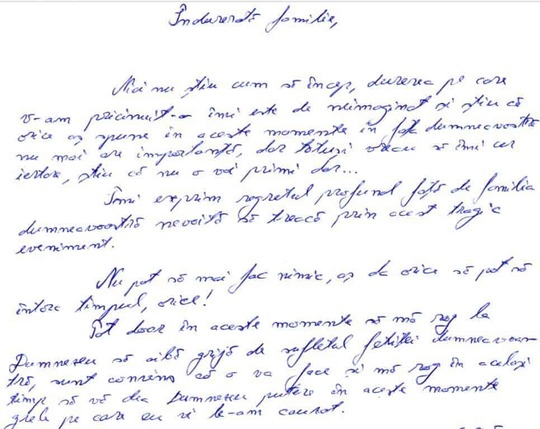 Îndurerată familie,
Nici nu știu cum să încep, durerea pe care
v-am pricinuit-o îmi este de neimaginat și știu că
orice aș spune în aceste momente în fața dumneavoastră
nu mai are importanță, dar totuși vreau să îmi cer
iertare, știu că nu o voi primi dar...
Îmi exprim regretul profund față de familia
dumneavoastră nevoită să treacă prin acest tragic
eveniment.
Nu pot să mai fac nimic, aș da orice să pot să
întorc timpul, orice!
Pot doar în aceste momente să mă rog la
Dumnezeu să aibă grijă de sufletul fetiței dumneavoas-
tră, sunt convins că o va face și mă rog în același
timp să vă dea Dumnezeu putere în aceste momente
grele pe care eu vi le-am cauzat.